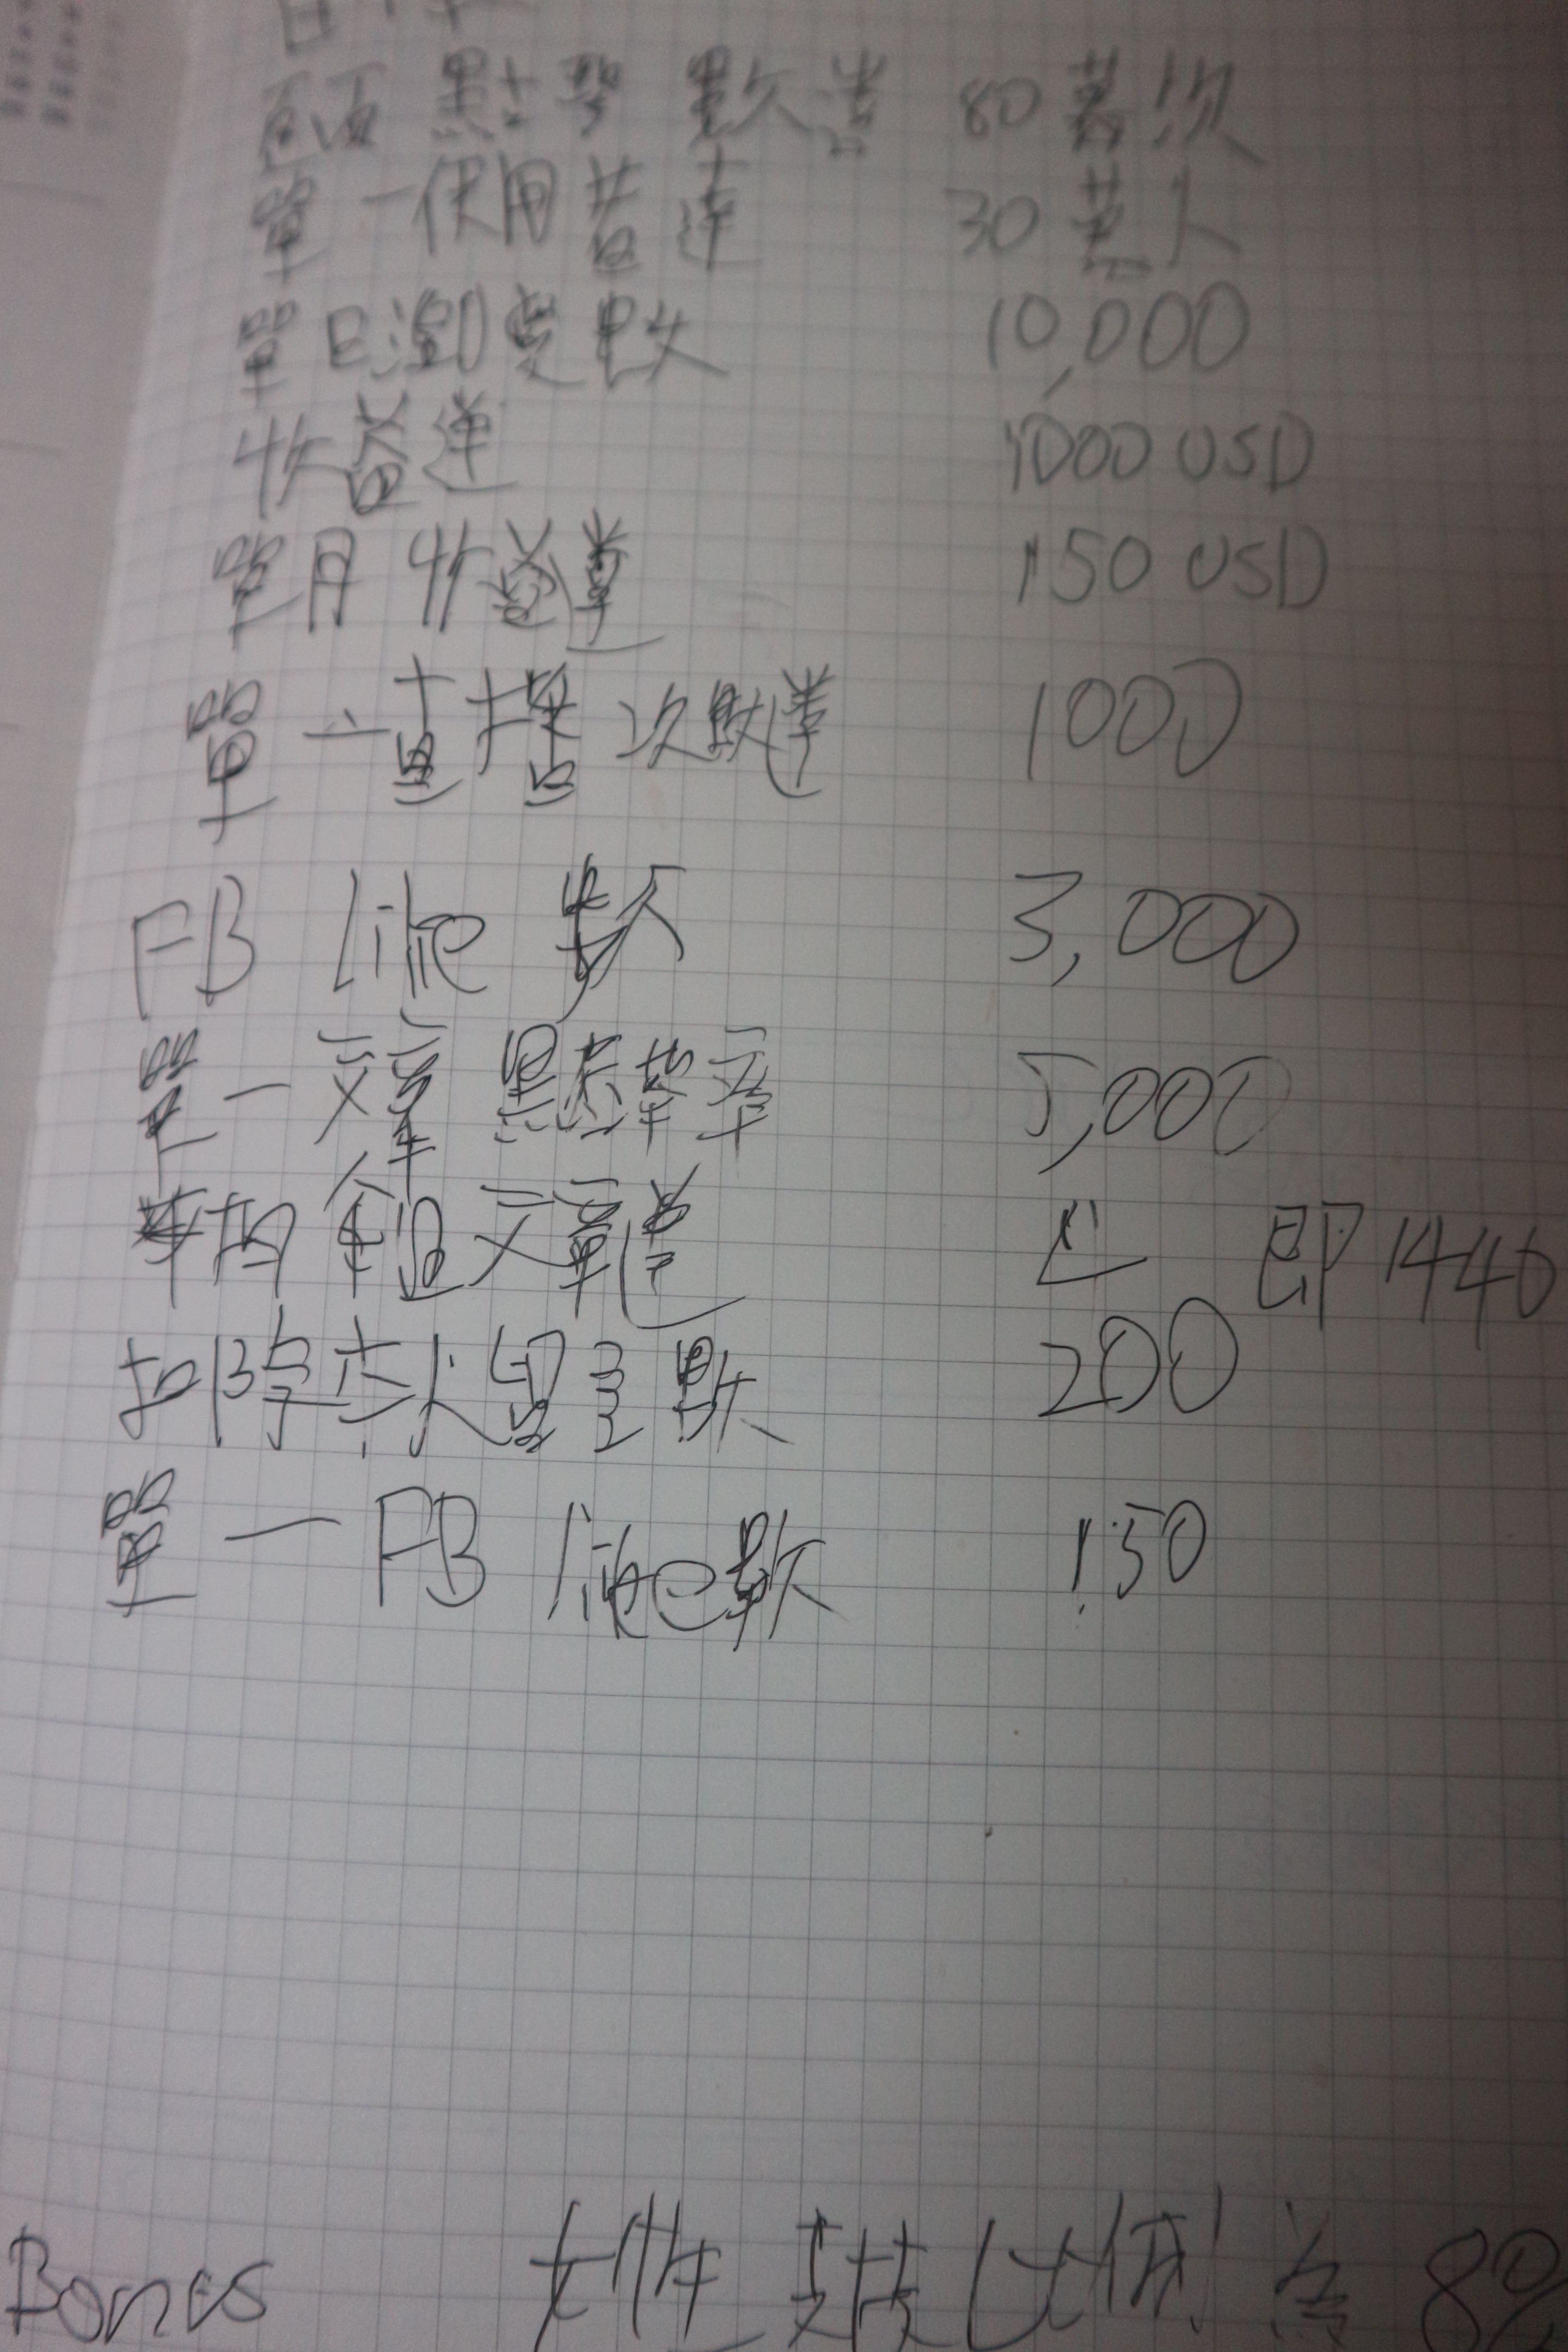 頁面 點擊 數達 80 萬次
單一使用者達 30 萬人
單日瀏覽數 10,000
收益達 1000 USD
單月收益達 150 USD
單一直播次數達 1000
FB like 數 3,000
單一文章 點擊率 5,000
平均每週文章達 4 即 1440
扣除本人留言數 200
單一 FB like 數 150
Bones 女性 比例為 80